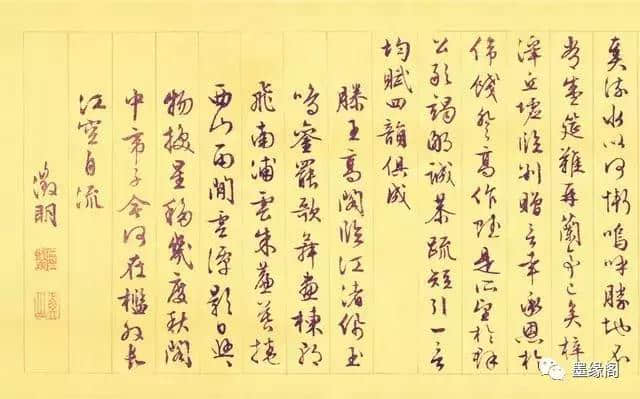 奏流水以何慚嗚呼勝地不
常盛筵難再蘭亭已矣梓
澤丘墟臨別贈言幸承恩於
偉餞登高作賦是所望於群
公敢竭鄙誠恭疏短引一言
均賦四韻俱成
滕王高閣臨江渚佩玉
鳴鑾罷歌舞畫棟朝
飛南浦雲朱簾暮捲
西山雨閒雲潭影日悠
物換星移幾度秋閣
中帝子今何在檻外長
江空自流
徵明
墨缘阁